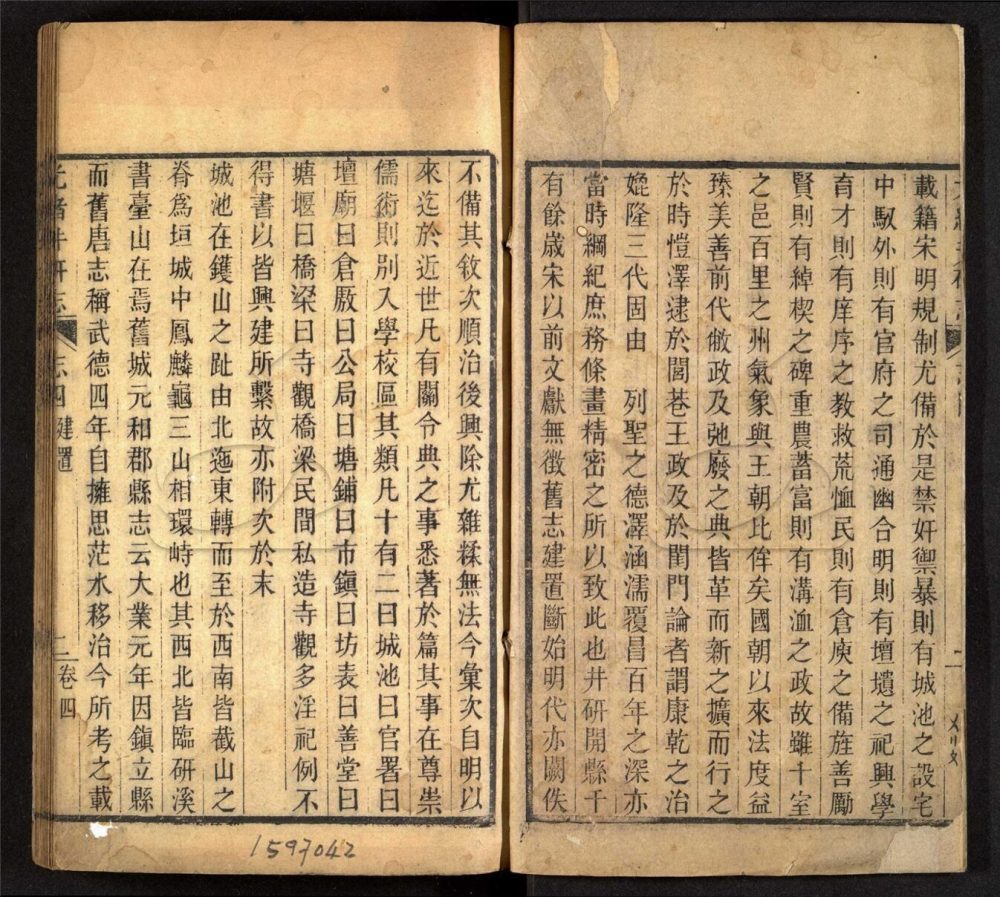 載籍宋明規制尤備於是禁奸禦暴則有城池之設宅
中馭外則有官府之司通幽合明則有壇壝之祀興學
育才則有庠序之教救荒恤民則有倉庾之備旌善勵
賢則有綽楔之碑重農蓄富則有溝洫之政故雖十室
之邑百里之州氣象與王朝比侔矣國朝以來法度益
臻美善前代敝政及弛廢之典皆革而新之擴而行之
於時愷澤逮於閭巷王政及於閨門論者謂康乾之治
媲隆三代固由　列聖之德澤涵濡覆昌百年之深亦
當時綱紀庶務條畫精密之所以致此也井研開縣千
有餘歲宋以前文獻無徵舊志建置斷始明代亦闕佚
不備其敘次順治後興除尤雜糅無法今彙次自明以
來迄於近世凡有關令典之事悉著於篇其事在尊崇
儒術則別入學校區其類凡十有二曰城池曰官署曰
壇廟曰倉廒曰公局曰塘鋪曰市鎭曰坊表曰善堂曰
塘堰曰橋梁曰寺觀橋梁民間私造寺觀多淫祀例不
得書以皆興建所繫故亦附次於末
城池在鑊山之趾由北迤東轉而至於西南皆截山之
脊爲垣城中鳳麟龜三山相環峙也其西北皆臨研溪
書臺山在焉舊城元和郡縣志云大業元年因鎭立縣
而舊唐志稱武德四年自擁思茫水移治今所考之載
光緒井研志　志四　建置　二　卷四
1597042